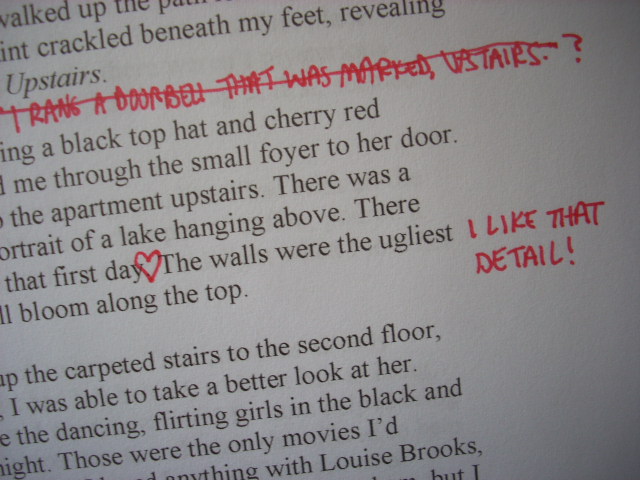 walked up the path
int crackled beneath my feet, revealing
Upstairs.
"I RANG A DOORBELL THAT WAS MARKED, UPSTAIRS." ?
ing a black top hat and cherry red
me through the small foyer to her door.
the apartment upstairs. There was a
ortrait of a lake hanging above. There
that first day The walls were the ugliest I LIKE THAT
DETAIL!
ll bloom along the top.
up the carpeted stairs to the second floor,
, I was able to take a better look at her.
e the dancing, flirting girls in the black and
night. Those were the only movies I'd
anything with Louise Brooks,
but I